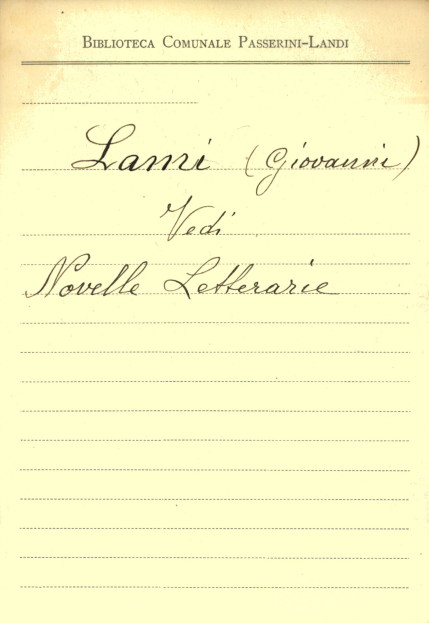 Biblioteca Comunale Passerini-Landi
Lami (Giovanni)
Vedi
Novelle Letterarie